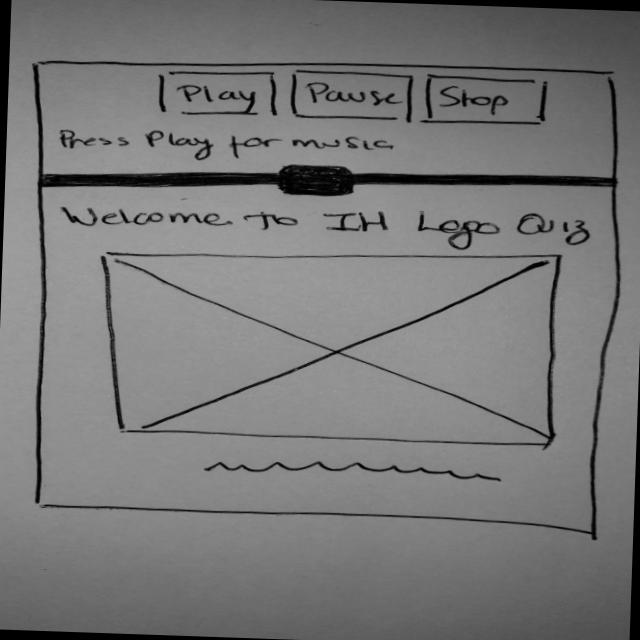 Play Pause Stop
Press Play for music
Welcome to IH Logo Quiz